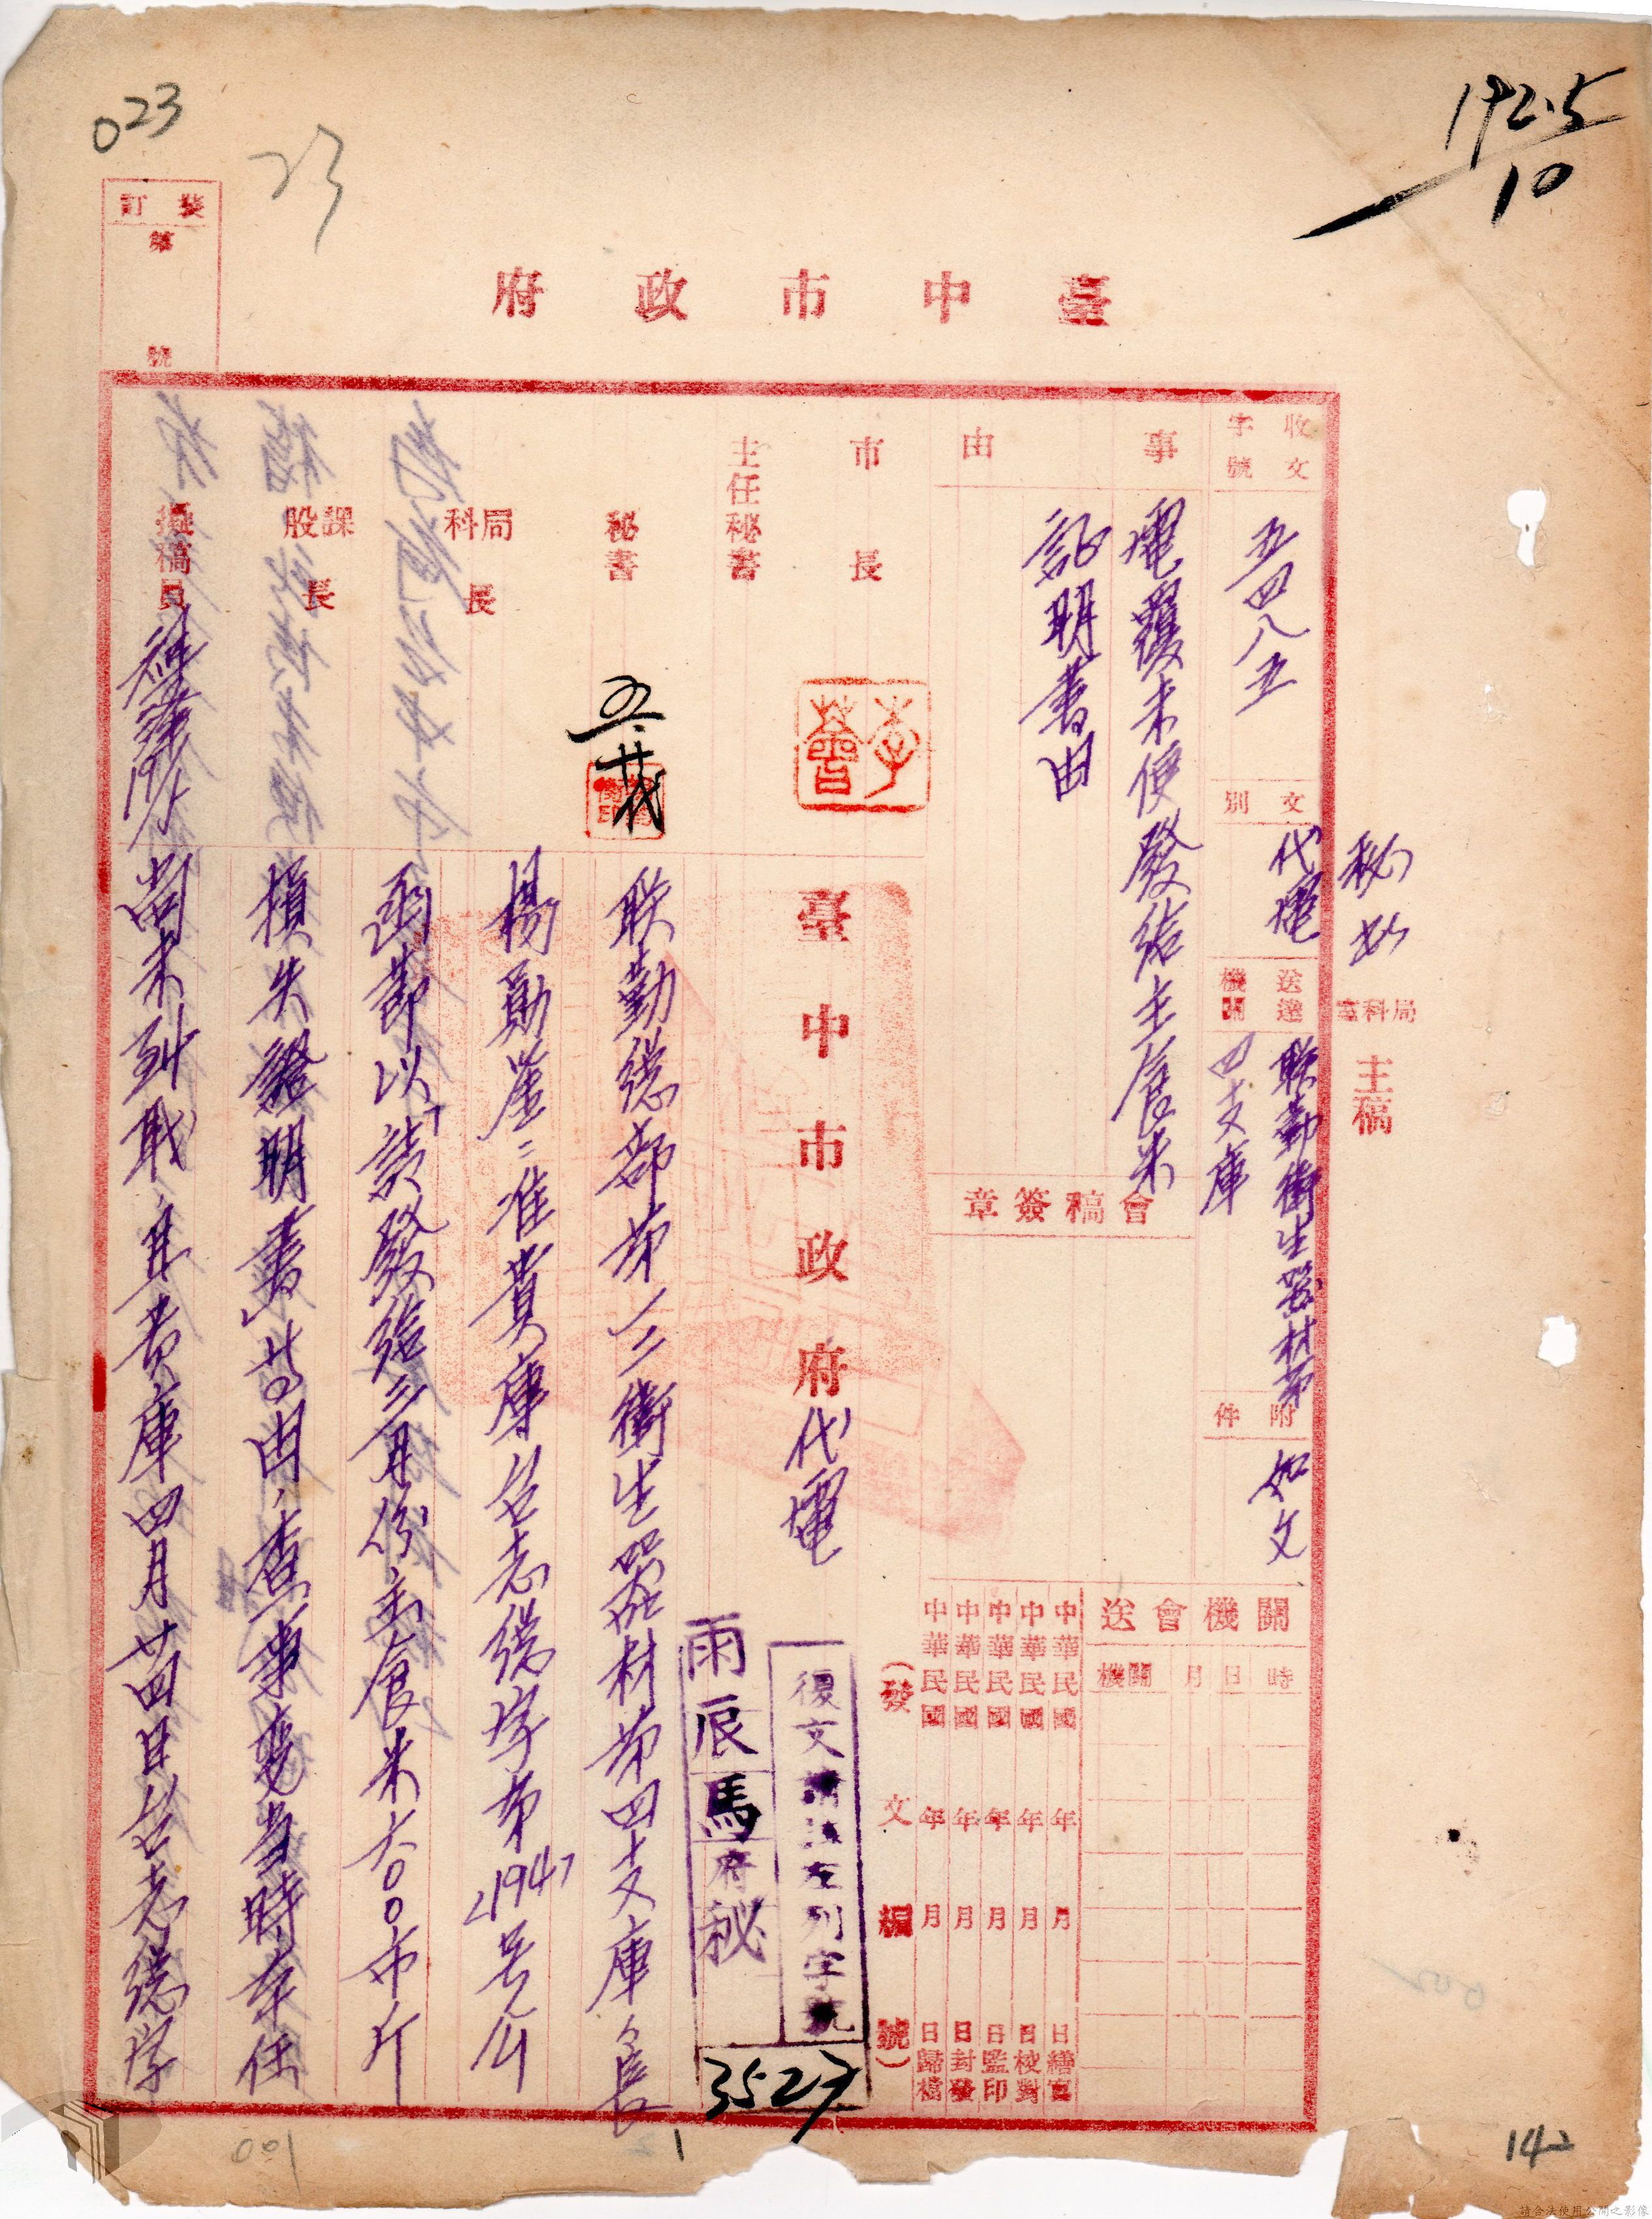 023
23
192.5
10
裝訂
第
號
臺中市政府
收文字號
五四八五
文別
代電
送達機關
聯勤衛生器材第
四支庫
附件
如文
秘書
局科室
主稿
事由
電覆未便發給主食米
証明書由
會稿簽章
關機會送
時 日 月 關機
市長
主任秘書
秘書
局科長
課股長
擬稿員
中華民國 年 月 日繕寫
中華民國 年 月 日校對
中華民國 年 月 日監印
中華民國 年 月 日封發
中華民國 年 月 日歸檔
(發文編號)
臺中市政府代電
復文請註左列字號
雨辰馬府秘
3527
聯勤總部第一二衛生器材第四支庫庫長
楊勛崖:准貴庫台志總字第21947号公
函節以「請發給三月份主食米六〇〇市斤
損失證明書」等由,查事变当時本任
尚未到職,且貴庫四月廿四日台志總字
001
1
142
請合法使用公開之影像